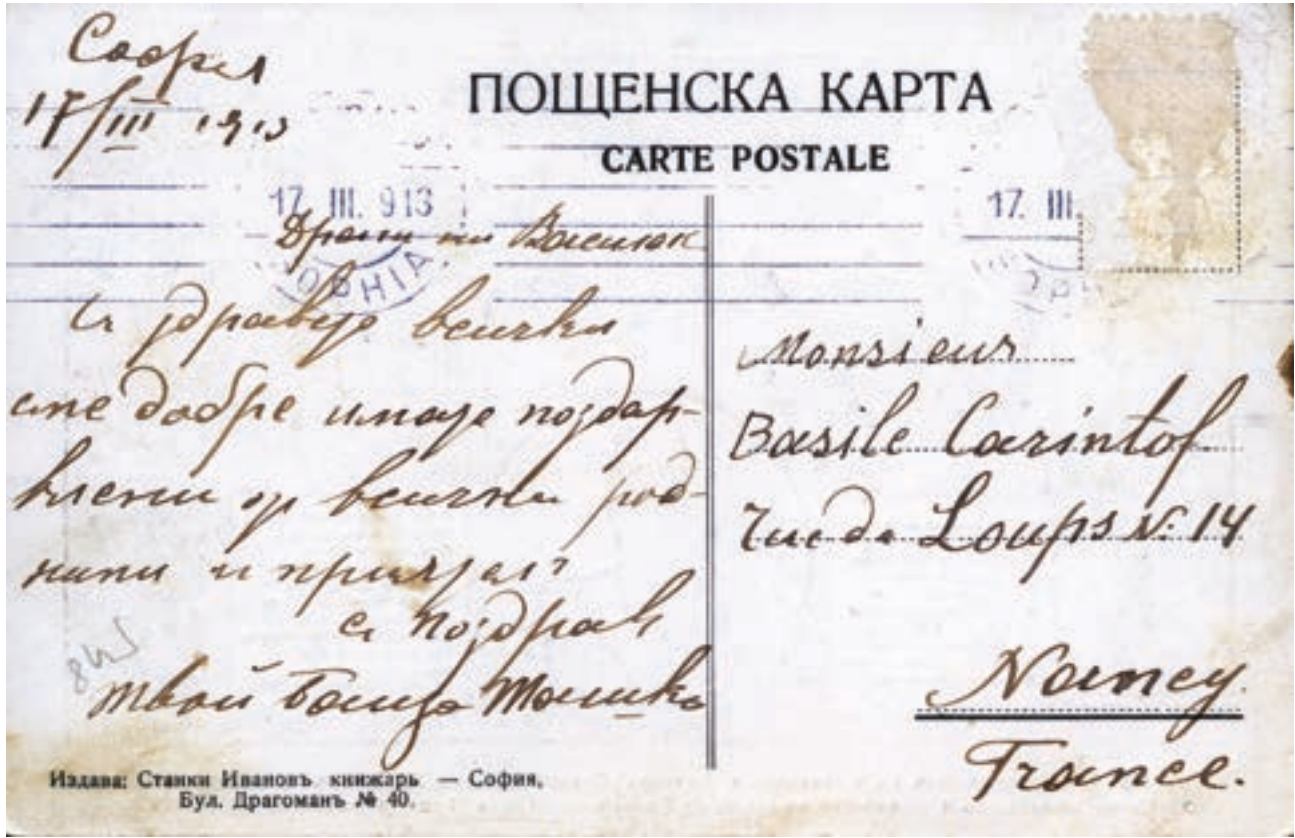 София
17/III 1913
ПОЩЕНСКА КАРТА
CARTE POSTALE
17. III. 913
17. III.
Драги ми Василак
Съ здравyе всички
сме добре имаш поздар-
влени от всички род-
нини и
с поздрав
твой баща Тошко
Monsieur
Basile Carintof
rue de Loups №: 14
Nancy
France.
845
Издава: Станки Ивановъ книжарь — София,
Бул. Драгоманъ № 40.